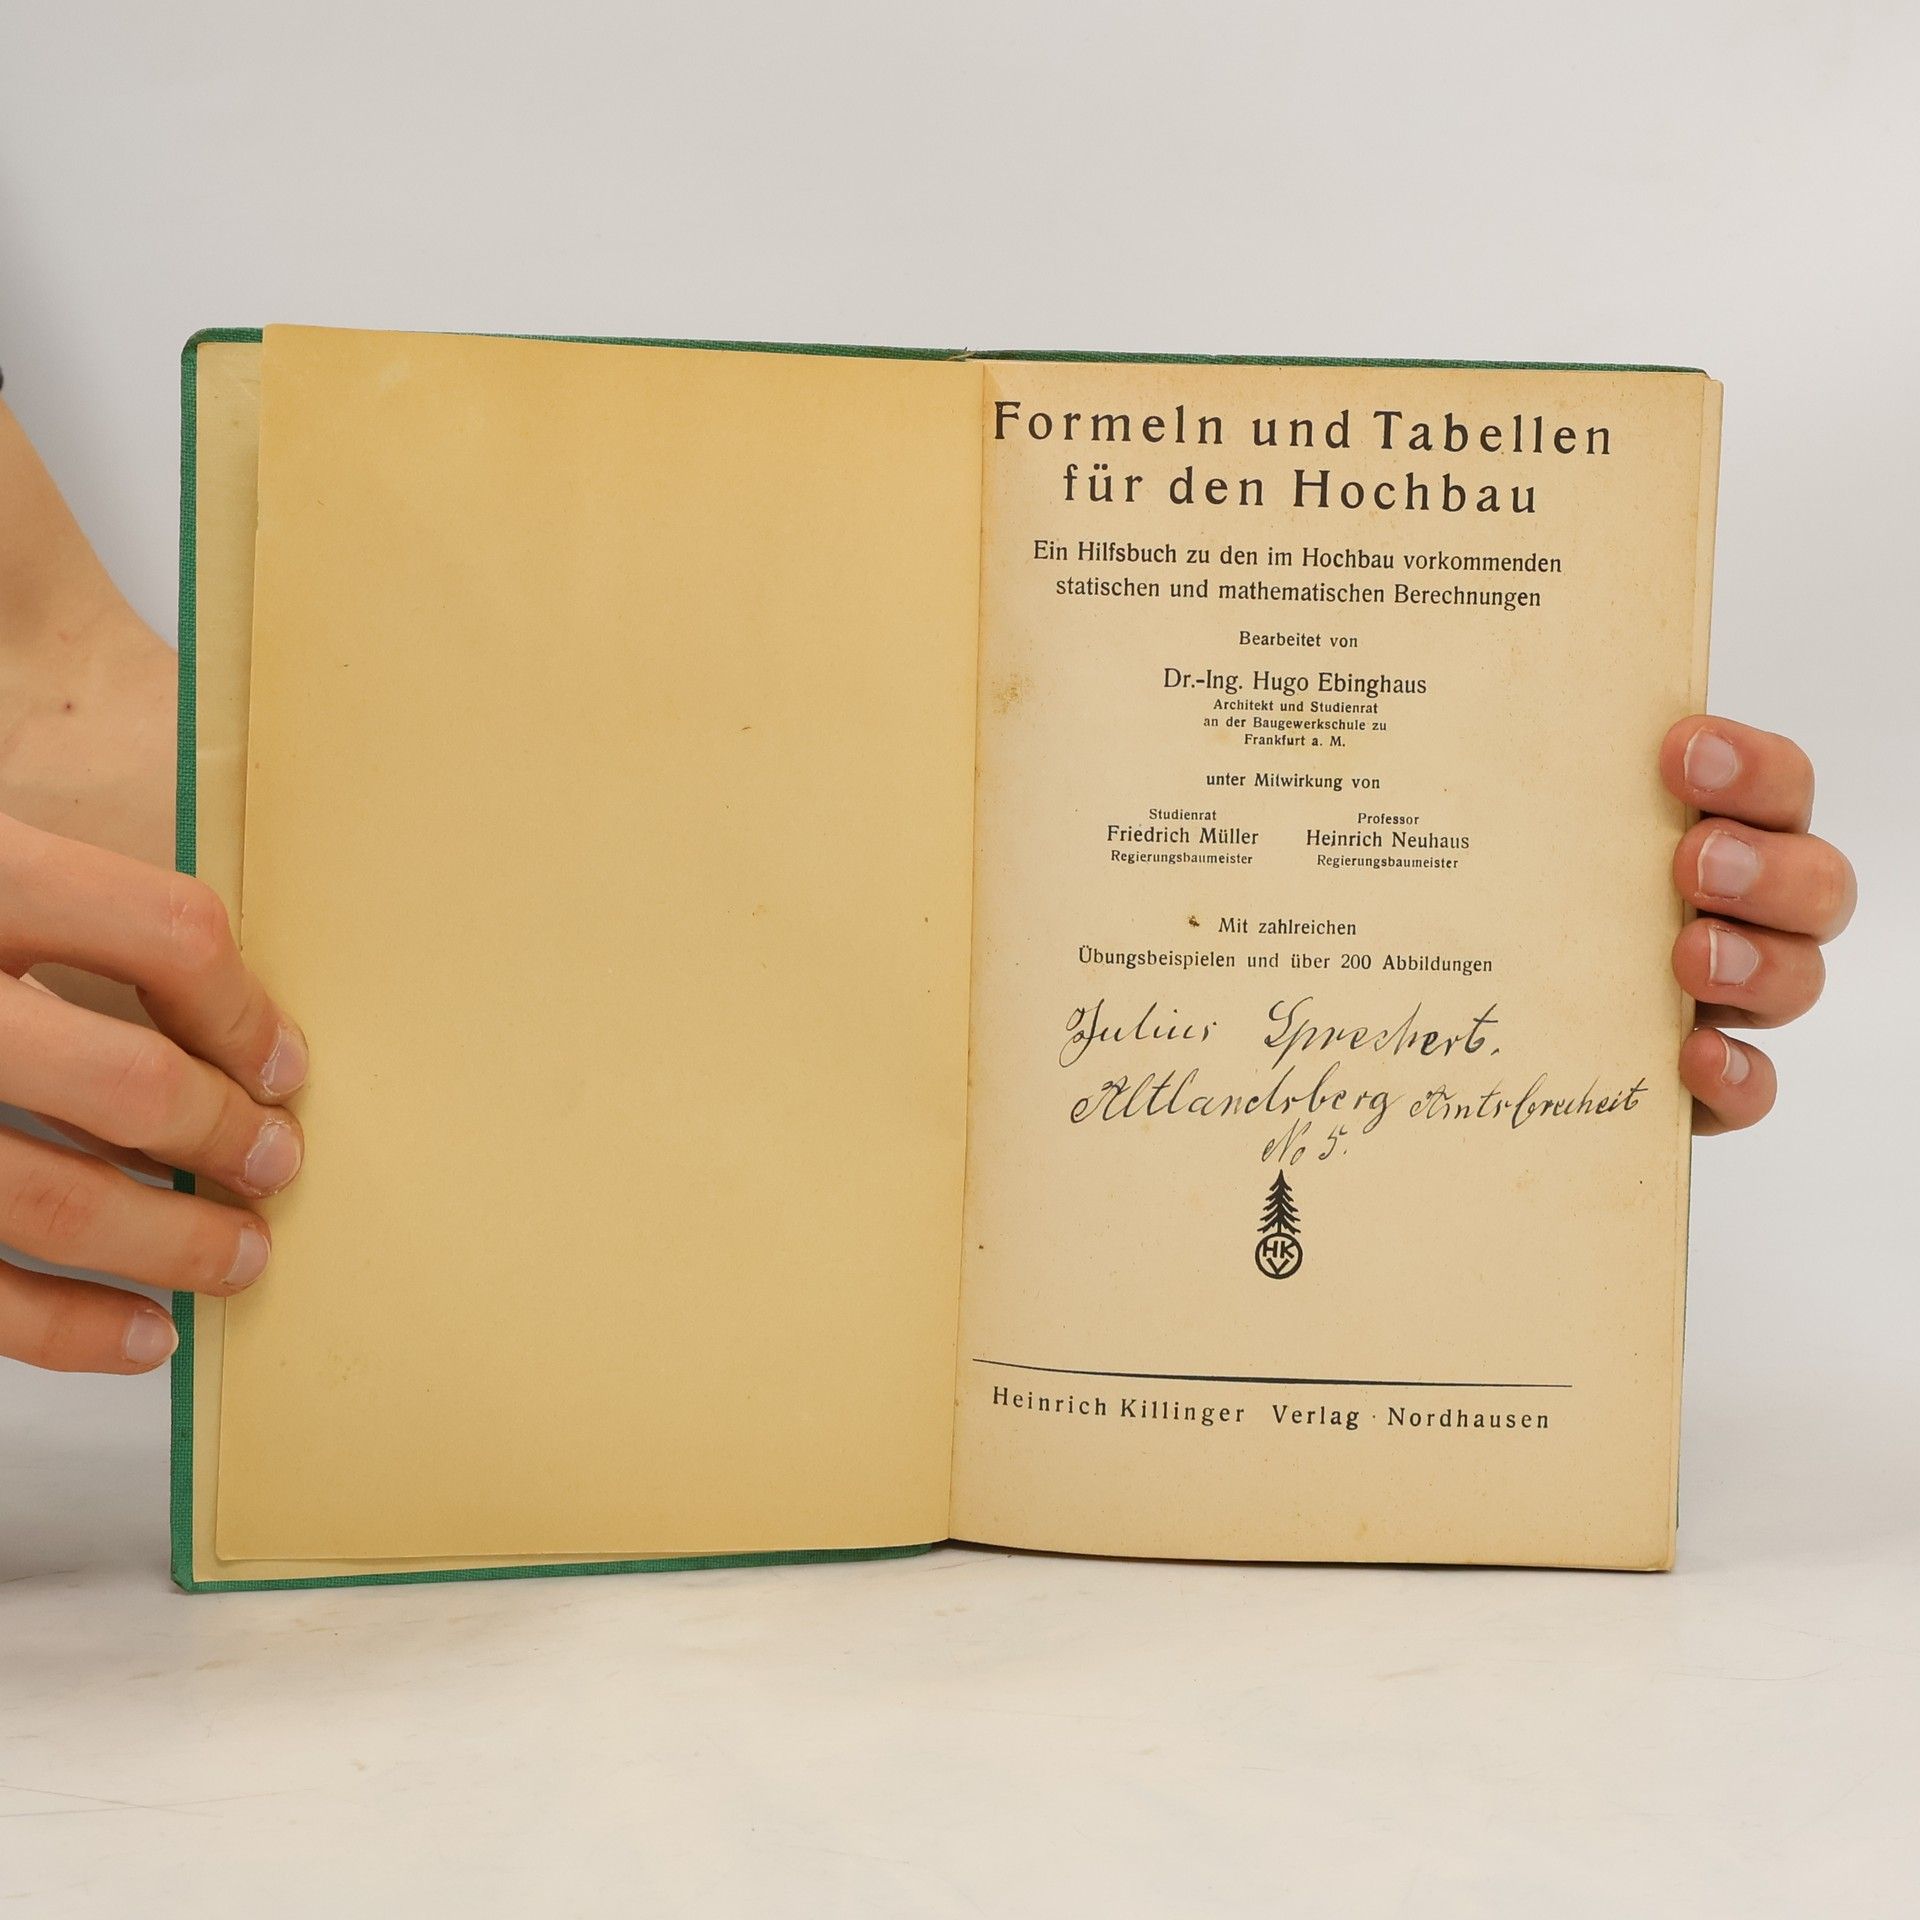 Formeln und Tabellen
für den Hochbau
Ein Hilfsbuch zu den im Hochbau vorkommenden
statischen und mathematischen Berechnungen
Bearbeitet von
Dr.-Ing. Hugo Ebinghaus
Architekt und Studienrat
an der Baugewerkschule zu
Frankfurt a. M.
unter Mitwirkung von
Studienrat
Friedrich Müller
Regierungsbaumeister
Professor
Heinrich Neuhaus
Regierungsbaumeister
Mit zahlreichen
Übungsbeispielen und über 200 Abbildungen
Julius Sprechert.
Altlandsberg Amtsfreiheit
No 5.
HKV
Heinrich Killinger Verlag · Nordhausen